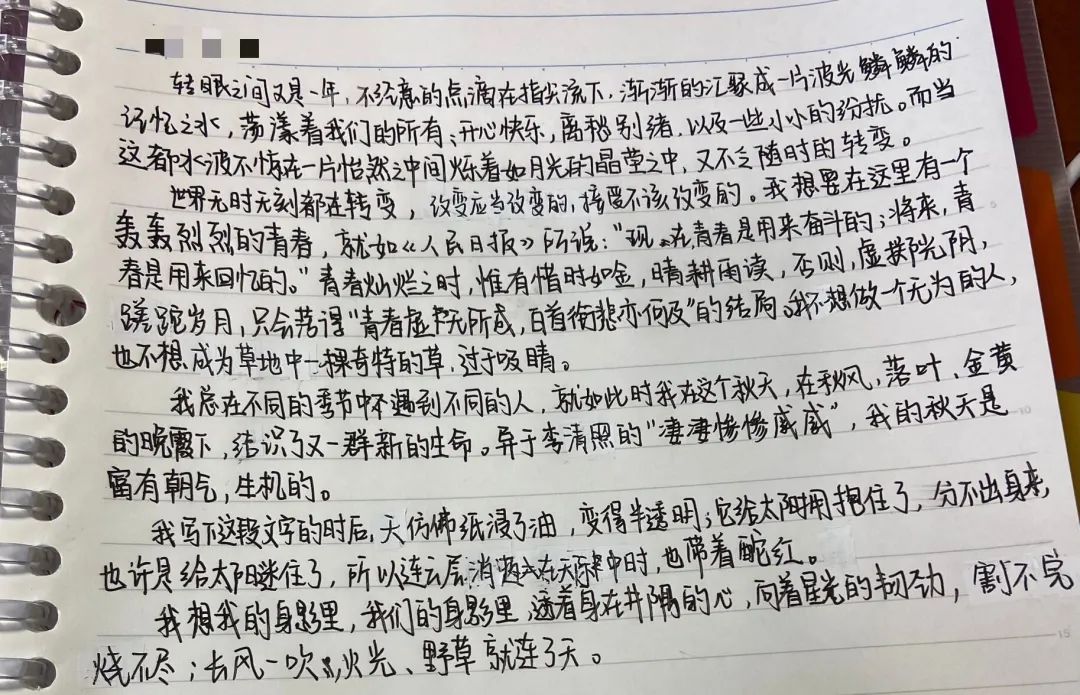 转眼之间又是一年,不经意的点滴在指尖流下,渐渐的汇聚成一片波光鳞鳞的
记忆之水,荡漾着我们的所有:开心快乐,离愁别绪,以及一些小小的纷扰。而当
这都水波不惊在一片怡然之中间烁着如月光的晶莹之中,又不乏随时的转变。
世界无时无刻都在转变,改变应当改变的,接受不该改变的。我想要在这里有一个
轰轰烈烈的青春,就如《人民日报》所说:“现在青春是用来奋斗的;将来,青
春是用来回忆的。”青春灿烂之时,惟有惜时如金,晴耕雨读,否则,虚掷光阴,
蹉跎岁月,只会落得“青春虚度无所成,白首衔悲亦何及”的结局。我不想做一个无为的人,
也不想成为草地中一棵奇特的草,过于吸睛。
我总在不同的季节中遇到不同的人,就如此时我在这个秋天,在秋风,落叶、金黄
的晚霞下,结识了又一群新的生命。异于李清照的“凄凄惨惨戚戚”,我的秋天是
富有朝气,生机的。
我写下这段文字的时后,天仿佛纸浸了油,变得半透明;它给太阳拥抱住了,分不出身来,
也许是给太阳迷住了,所以连云层消逝在天际中时,也带着酡红。
我想我的身影里,我们的身影里,透着身在井隅的心,向着星光的韧劲,割不完
烧不尽;长风一吹,火光、野草就连了天。